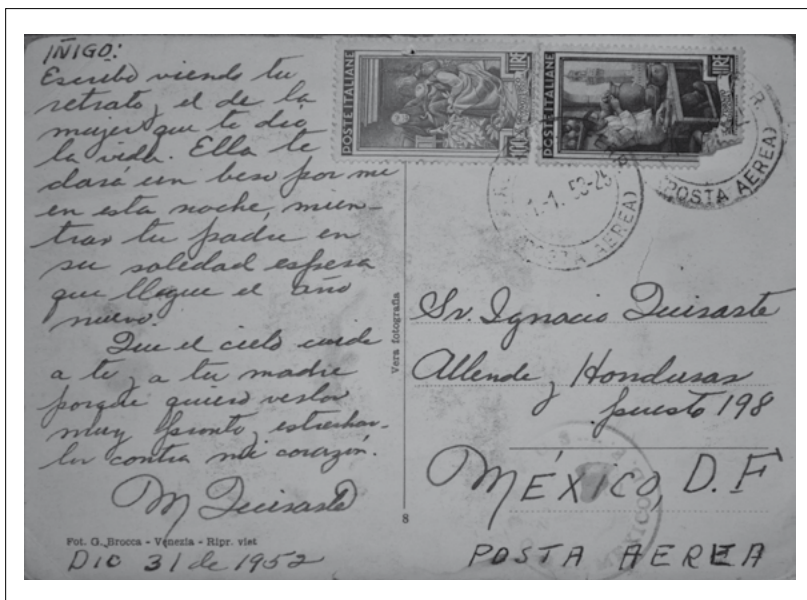 IÑIGO:
Escribo viendo tu
retrato, el de la
mujer que te dio
la vida. Ella te
dará un beso por mi
en esta noche, mien-
tras tu padre en
su soledad espera
que llegue el año
nuevo.
Que el cielo cuide
a ti y a tu madre
porque quiero verlos
muy pronto, estrechar-
los contra mi corazón.
M Quirarte
Fot. G. Brocca - Venezia - Ripr. viet
DIC 31 de 1952
Vera fotografia
8
POSTE ITALIANE
LIRE
POSTE ITALIANE
LIRE
1.-1.53-25
(POSTA AEREA)
(POSTA AEREA)
Sr. Ignacio Quirarte
Allende y Honduras
puesto 198
MÉXICO, D.F
POSTA AEREA